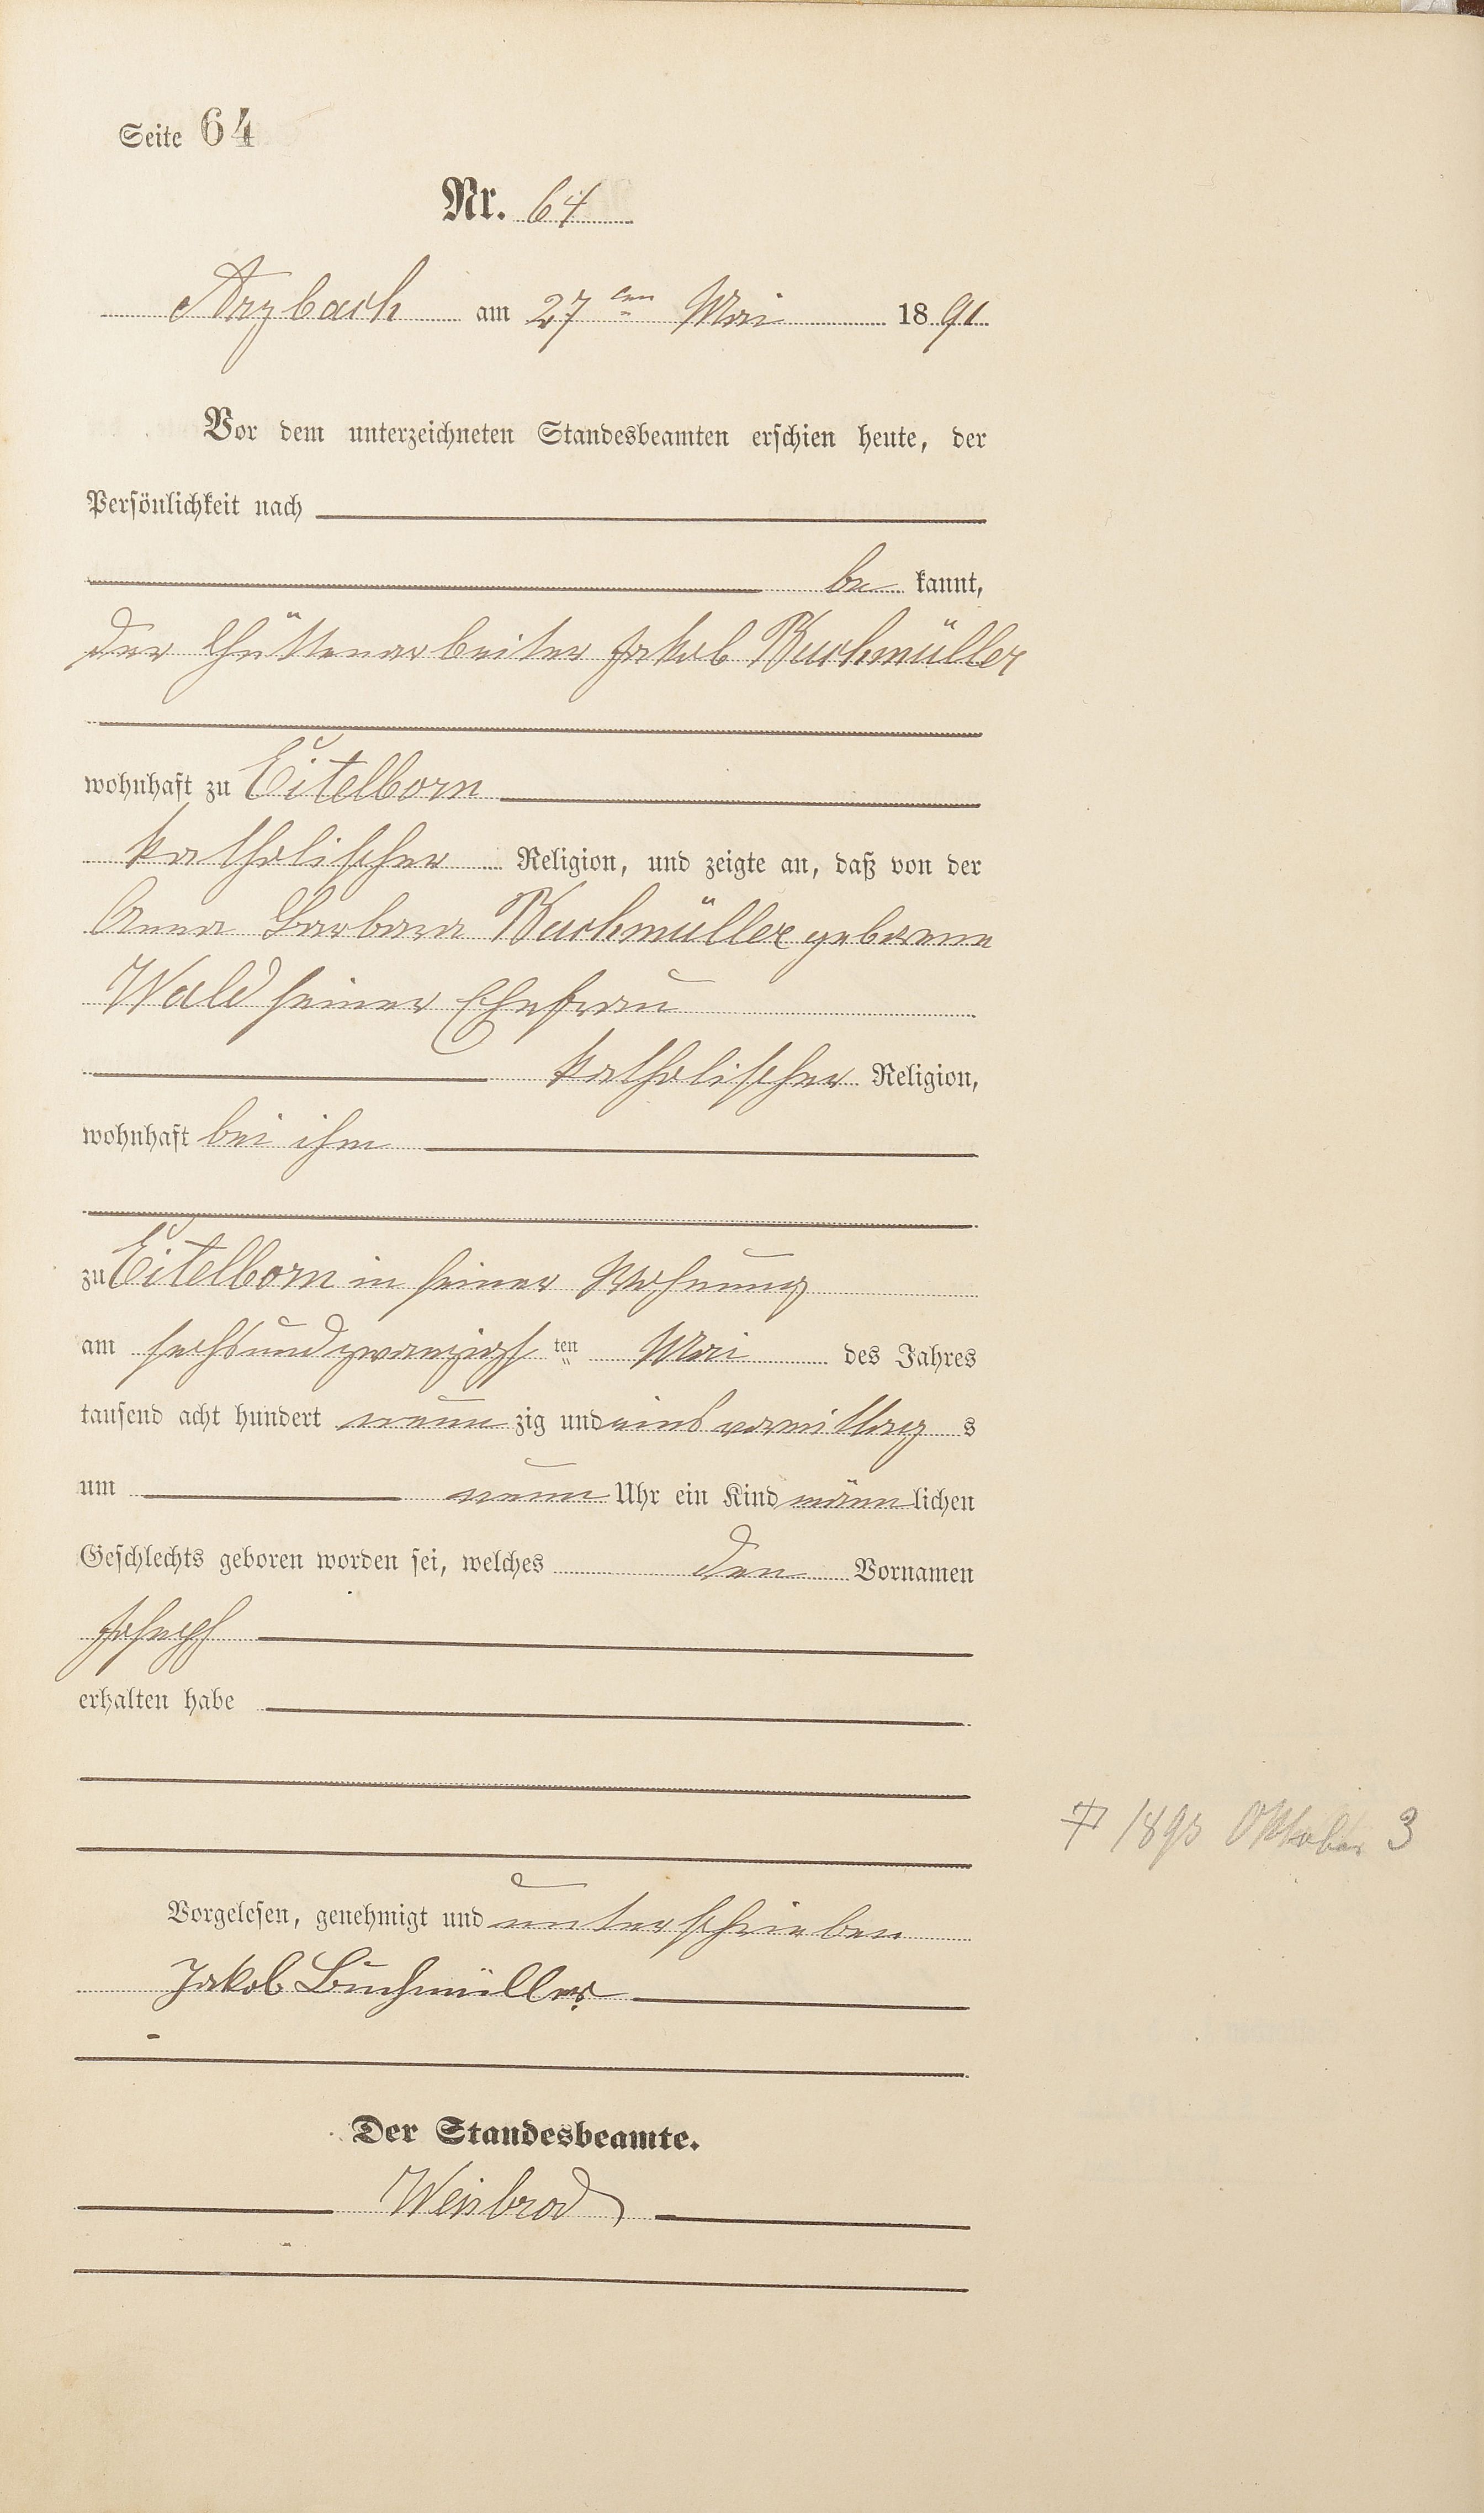 Seite 64
Nr. 64
Arzbach am 27ten Mai 1891
Vor dem unterzeichneten Standesbeamten erschien heute, der
Persönlichkeit nach
be kannt,
der Hüttenarbeiter Jakob Buchmüller
wohnhaft zu Eitelborn
katholischer Religion, und zeigte an, daß von der
Anna Barbara Buchmüller geborene
Wald seiner Ehefrau
katholischer Religion,
wohnhaft bei ihm
zu Eitelborn in seiner Wohnung
am sechsundzwanzigsten Mai des Jahres
tausend acht hundert neun zig und eins vormittag s
um neun Uhr ein Kind männlichen
Geschlechts geboren worden sei, welches den Vornamen
Joseph
erhalten habe
Vorgelesen, genehmigt und unterschrieben
Jakob Buchmüller
Der Standesbeamte.
Weisbrod
Oktober 3